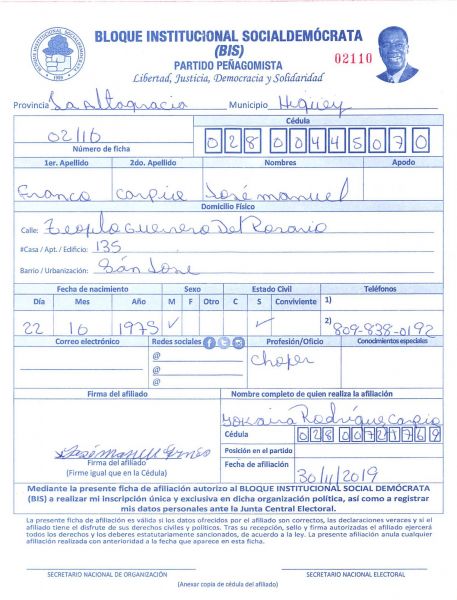 BLOQUE INSTITUCIONAL SOCIALDEMÓCRATA
(BIS)
PARTIDO PEÑAGOMISTA
02110
Libertad, Justicia, Democracia y Solidaridad
Provincia La Altagracia Municipio Higuey
Cédula
02110 028 0044507 0
Número de ficha
1er. Apellido 2do. Apellido Nombres Apodo
Franco Carpio José manuel
Domicilio Físico
Calle: Teofilo Guerrero Del Rosario
#Casa / Apt. / Edificio: 135
Barrio / Urbanización: San Jose
Fecha de nacimiento Sexo Estado Civil Teléfonos
Día Mes Año M F Otro C S Conviviente 1)
22 10 1975 ✓ ✓ 2) 809-838-0192
Correo electrónico Redes sociales Profesión/Oficio Conocimientos especiales
@ Chofer
@
@
Firma del afiliado Nombre completo de quien realiza la afiliación
Yokaira Rodríguez Carpio
Cédula
Posición en el partido
José Manuel Franco
Firma del afiliado
(Firme igual que en la Cédula)
Fecha de afiliación 30/11/2019
Mediante la presente ficha de afiliación autorizo al BLOQUE INSTITUCIONAL SOCIAL DEMÓCRATA
(BIS) a realizar mi inscripción única y exclusiva en dicha organización política, así como a registrar
mis datos personales ante la Junta Central Electoral.
La presente ficha de afiliación es válida si los datos ofrecidos por el afiliado son correctos, las declaraciones veraces y si el
afiliado tiene el disfrute de sus derechos civiles y políticos. Tras su recepción, sello y firma autorizadas el afiliado ejercerá
todos los derechos y los deberes estatutariamente sancionados, de acuerdo a la ley. La presente afiliación anula cualquier
afiliación realizada con anterioridad a la fecha que aparece en esta ficha.
SECRETARIO NACIONAL DE ORGANIZACIÓN SECRETARIO NACIONAL ELECTORAL
(Anexar copia de cédula del afiliado)